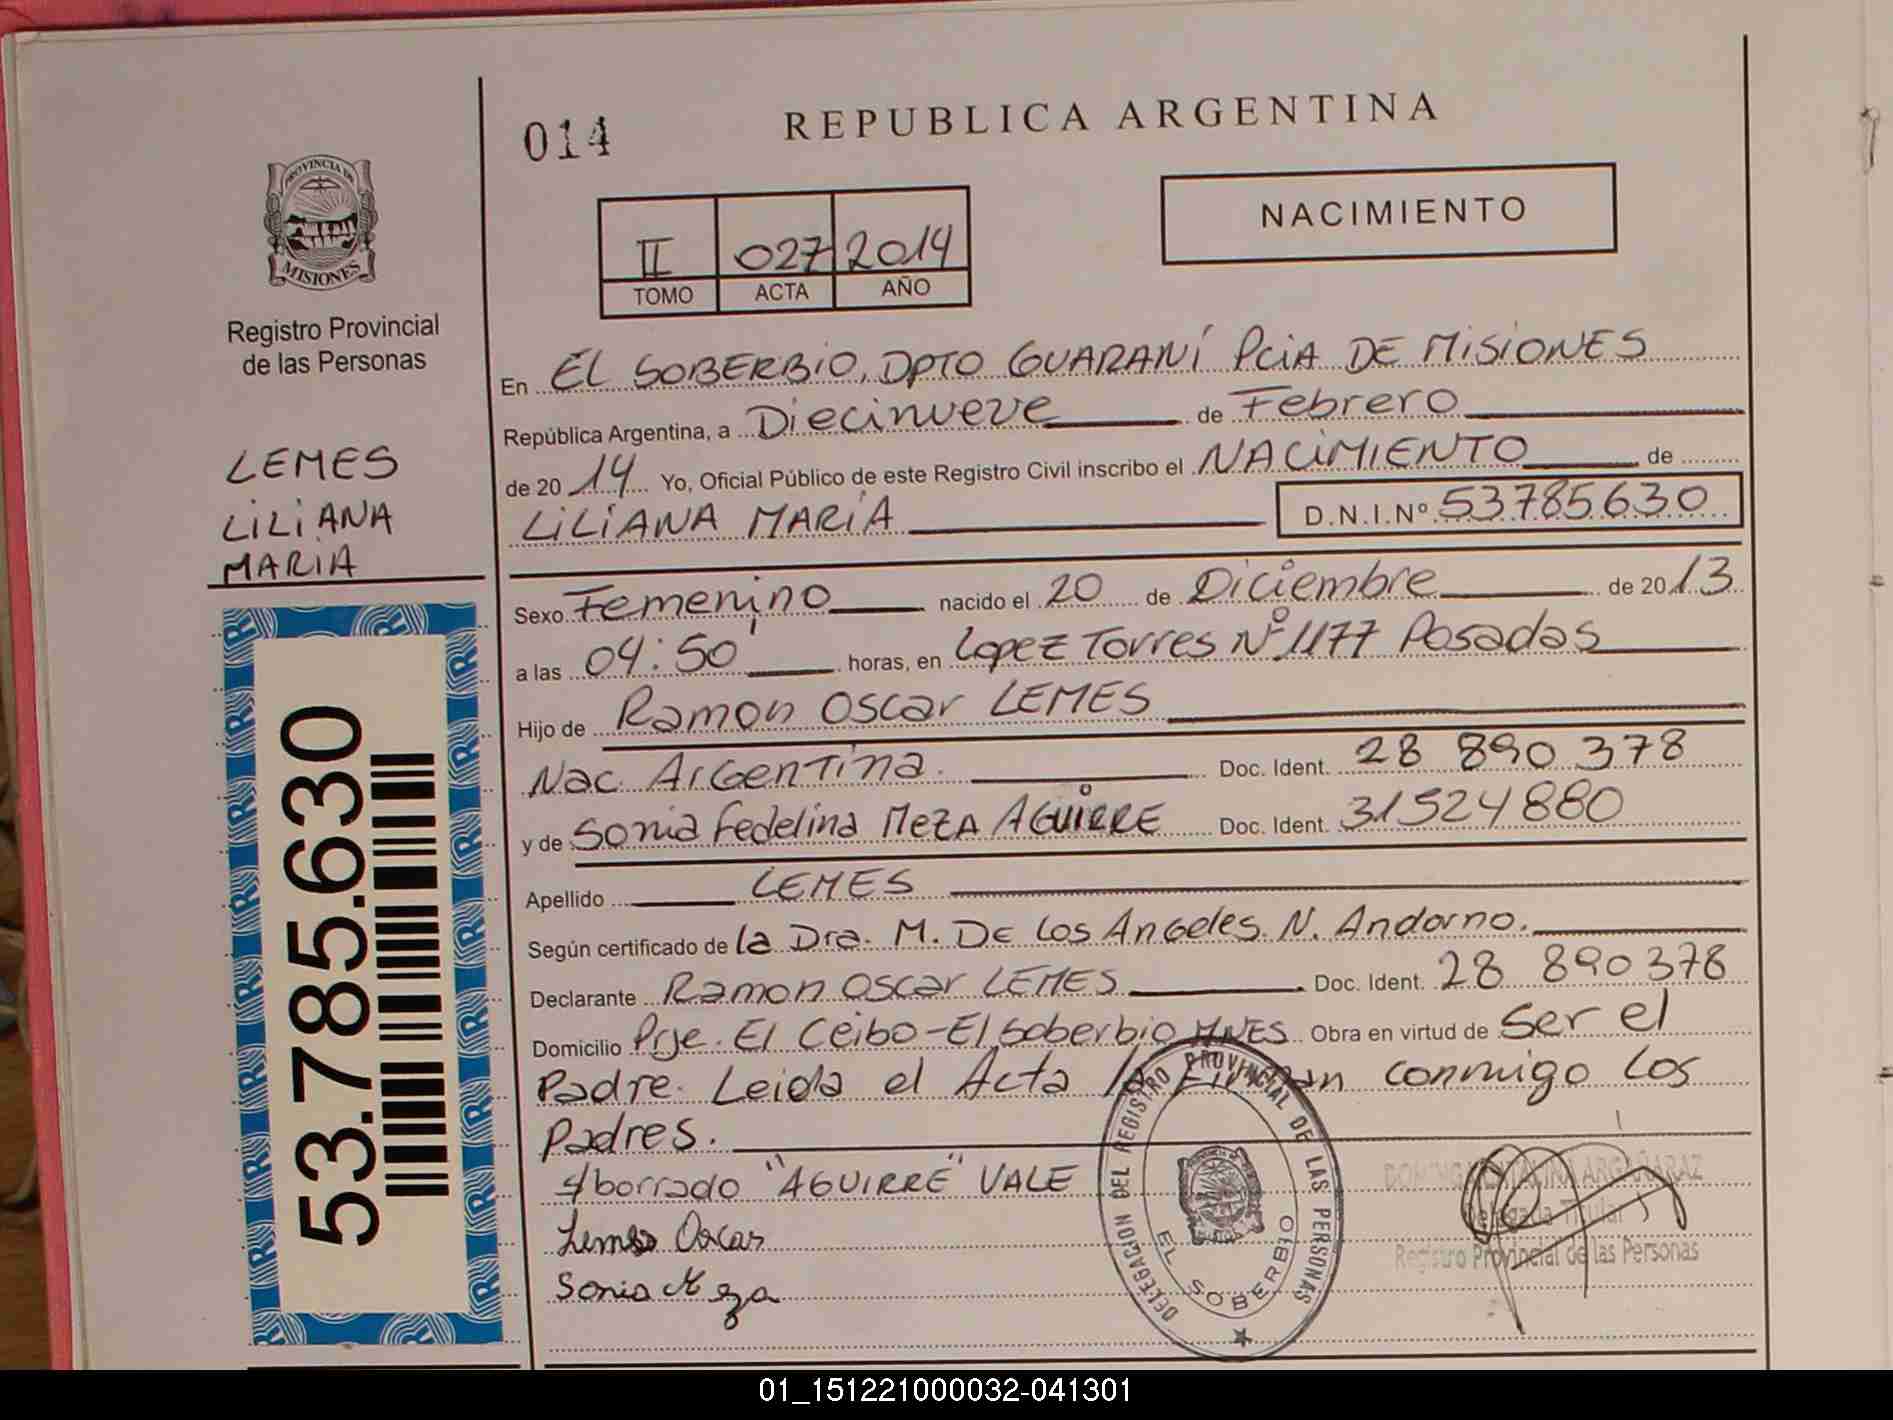 014
REPUBLICA ARGENTINA
PROVINCIA DE
MISIONES
Registro Provincial
de las Personas
II 027 2014
TOMO ACTA AÑO
NACIMIENTO
En EL SOBERBIO, DPTO GUARANÍ PCIA DE MISIONES
República Argentina, a Diecinueve de Febrero
de 2014 Yo, Oficial Público de este Registro Civil inscribo el NACIMIENTO de
LILIANA MARÍA
D.N.I.Nº 53785630
LEMES
LILIANA
MARIA
Sexo Femenino nacido el 20 de Diciembre de 2013
a las 04:50' horas, en Lopez Torres Nº 1177 Posadas
Hijo de Ramon Oscar LEMES
Nac. Argentina. Doc. Ident. 28 890 378
y de Sonia Fedelina MEZA AGUIRRE Doc. Ident. 31524880
Apellido LEMES
Según certificado de la Dra. M. De Los Angeles. N. Andorno.
Declarante Ramon Oscar LEMES Doc. Ident. 28 890378
Domicilio Prje. El Ceibo-El Soberbio MNES Obra en virtud de Ser el
Padre. Leida el Acta la Firman conmigo los
Padres.
S/borrado "AGUIRRE" VALE
Lemes Oscar
Sonia Meza
53.785.630
DELEGACION DEL REGISTRO PROVINCIAL DE LAS PERSONAS
EL SOBERBIO
DOMINGA CATALINA ARGAÑARAZ
Delegada Titular
Registro Provincial de las Personas
01_151221000032-041301